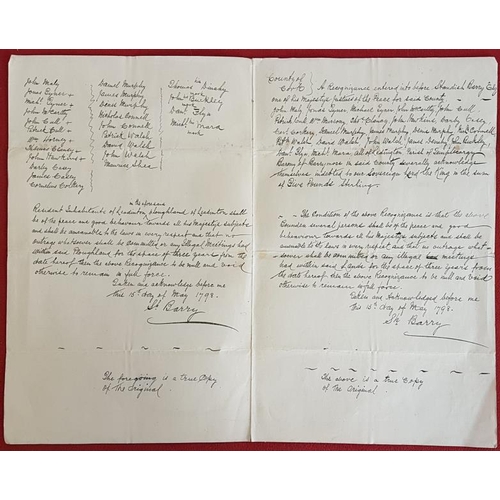 John Maly
James Eyner +
Mich.l Eyner +
John McCarthy
John Cull +
Patrick Cull +
Wm
Thomas Clancy +
John Hawkins +
Darby Casey
James Casey
Cornelius Corkery
Daniel Murphy
James Murphy
Denis Murphy
Nicholas Connell
John Connell
Patrick Walsh
David Walsh
John Walsh
Maurice Shea
Thomas
his
John Buckley
mark
Dan.l Flyn
Mich.l
mark
Resident Inhabitants of ploughland of shall
be of the peace and good behaviour towards all his Majestys subjects
and shall be amenable to the laws in every respect and that no
outrage whatsoever shall be committed or any Illegal Meetings had
within said Ploughland for the space of three years from the
date hereof then the above Recognizance to be null and void
otherwise to remain in full force.
Taken and before me
this 15th day of May 1798.
St Barry
The foregoing is a True Copy
of the Original
County of
Cork
A Recognizance entered into before Standish Barry Esq
one of his Majestys Justices of the Peace for said County
John Maly James Eyner Michael Eyner John McCarthy John Cull
Patrick Cull Wm Thos Clancy John Hawkins Darby Casey
Corl Corkery Daniel Murphy James Murphy Denis Murphy Connell
Patk Walsh David Walsh John Walsh James John Buckley
Danl Flyn all of Parish of
Barony of in said County severally acknowledge
themselves indebted to our Sovereign Lord the King in the sum
of Five Pounds Sterling.
The Condition of the above Recognizance is that the above
Bounden several persons shall be of the peace and good
behaviour towards all his Majestys subjects and shall be
amenable to the laws in every respect and that no outrage what
-soever shall be committed or any illegal meetings
had within said for the space of three years from
the date hereof then the above Recognizance to be null and void
otherwise to remain in full force.
Taken and Acknowledged before me
this 15th day of May 1798.
St Barry
The above is a True Copy
of the Original.